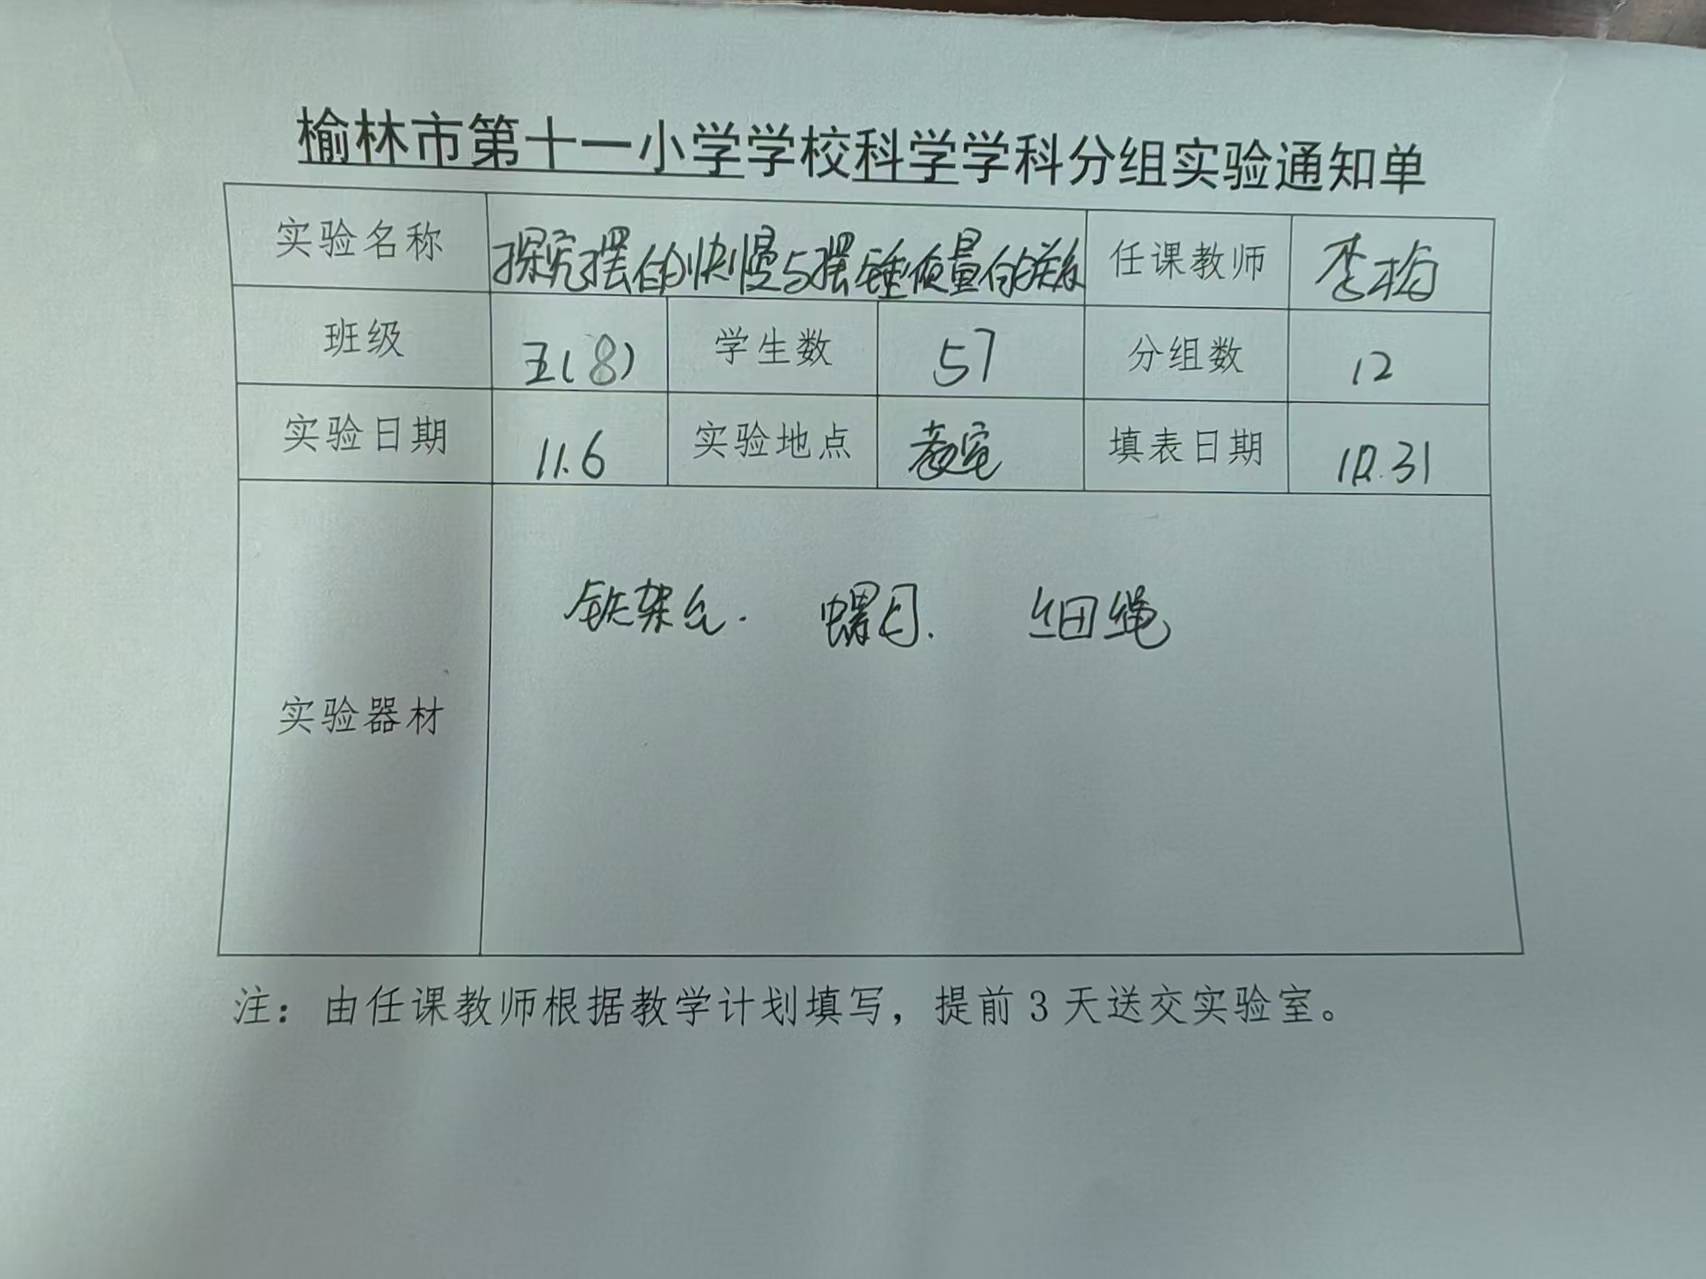 榆林市第十一小学学校科学学科分组实验通知单
实验名称 探究摆的快慢与摆锤质量的关系 任课教师 李梅
班级 五(8) 学生数 57 分组数 12
实验日期 11.6 实验地点 教室 填表日期 10.31
铁架台. 螺母. 细绳
实验器材
注：由任课教师根据教学计划填写，提前3天送交实验室。